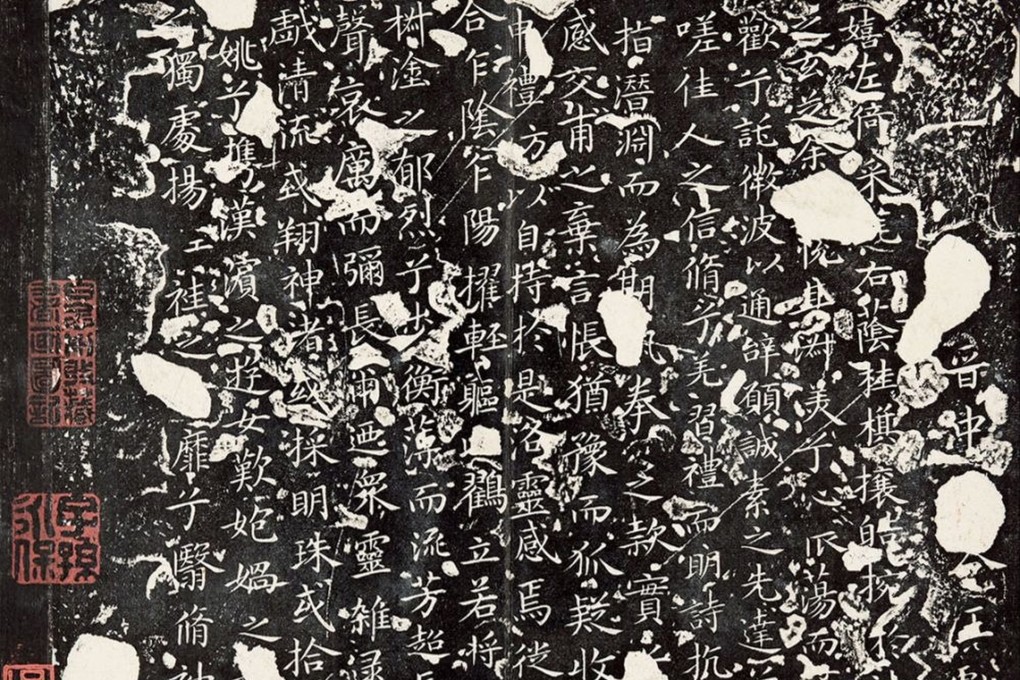 晉中令王
嬉左倚采旄右蔭桂旗攘皓捥於
之玄芝余悅其淑美兮心振蕩而
歡兮託微波以通辭願誠素之先達
嗟佳人之信脩兮羌習禮而明詩抗
指潛淵而為期執拳之款實
感交甫之棄言悵猶豫而狐疑收
申禮方以自持於是洛靈感焉徙
合乍陰乍陽擢輕軀以鶴立若將
椒塗之郁烈兮步衡薄而流芳超
聲哀厲而彌長爾迺衆靈雜
戲清流或翔神渚或採明珠或拾
姚兮攜漢濱之遊女歎匏媧之
之獨處揚袿之靡兮翳脩袖
子孫永保